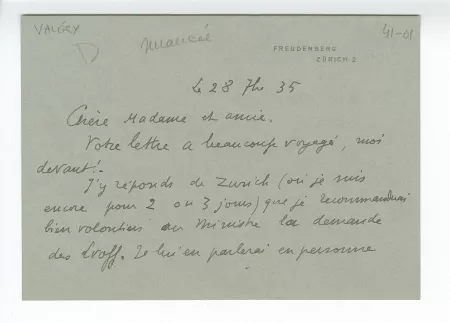 VALÉRY
41-01
FREUDENBERG
ZÜRICH-2
Le 28 7bre 35
Chère Madame et amie.
Votre lettre a beaucoup voyagé, moi
devant!.
J'y réponds de Zurich (où je suis
encore pour 2 ou 3 jours) que je recommanderai
bien volontiers au Ministre la demande
des Lvoff. Je lui en parlerai en personne